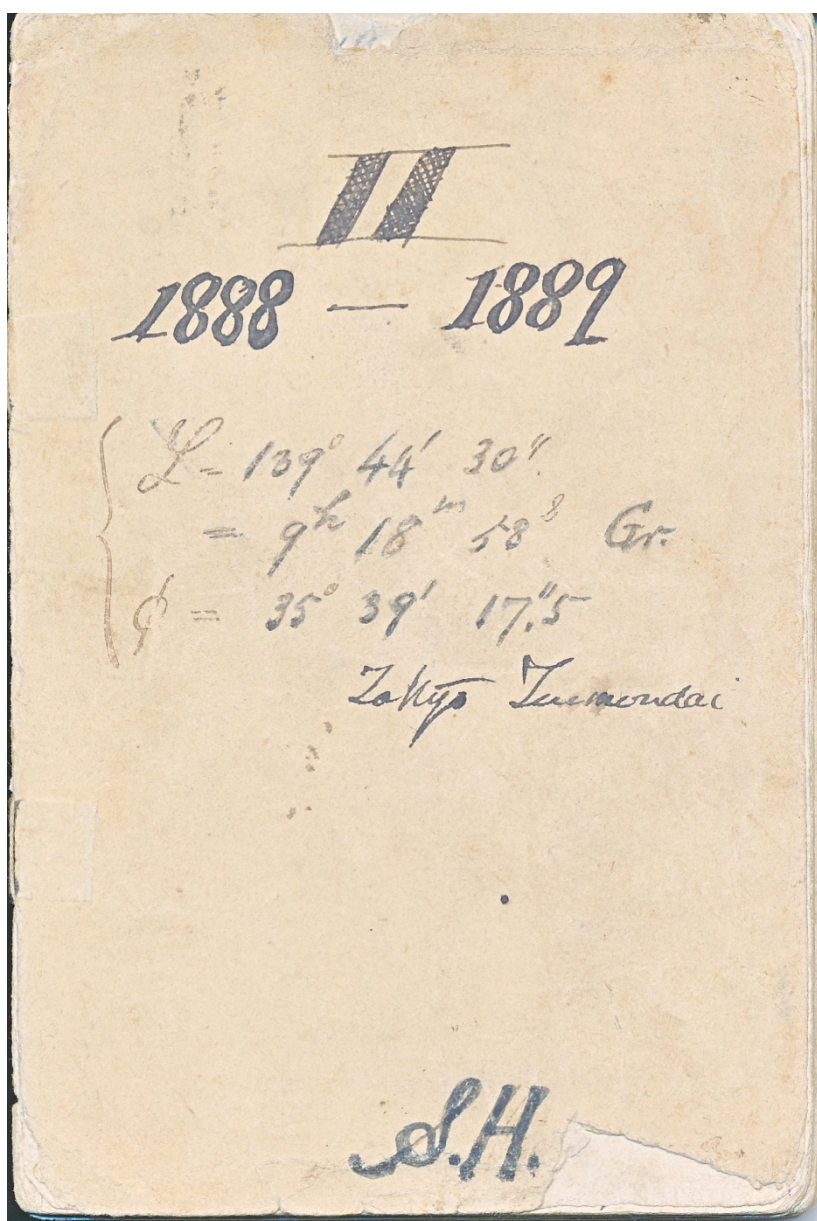 II
1888 — 1889
L = 139° 44' 30"
= 9h 18m 58s Gr.
φ = 35° 39' 17."5
Tokyo Tenmondai
S.H.